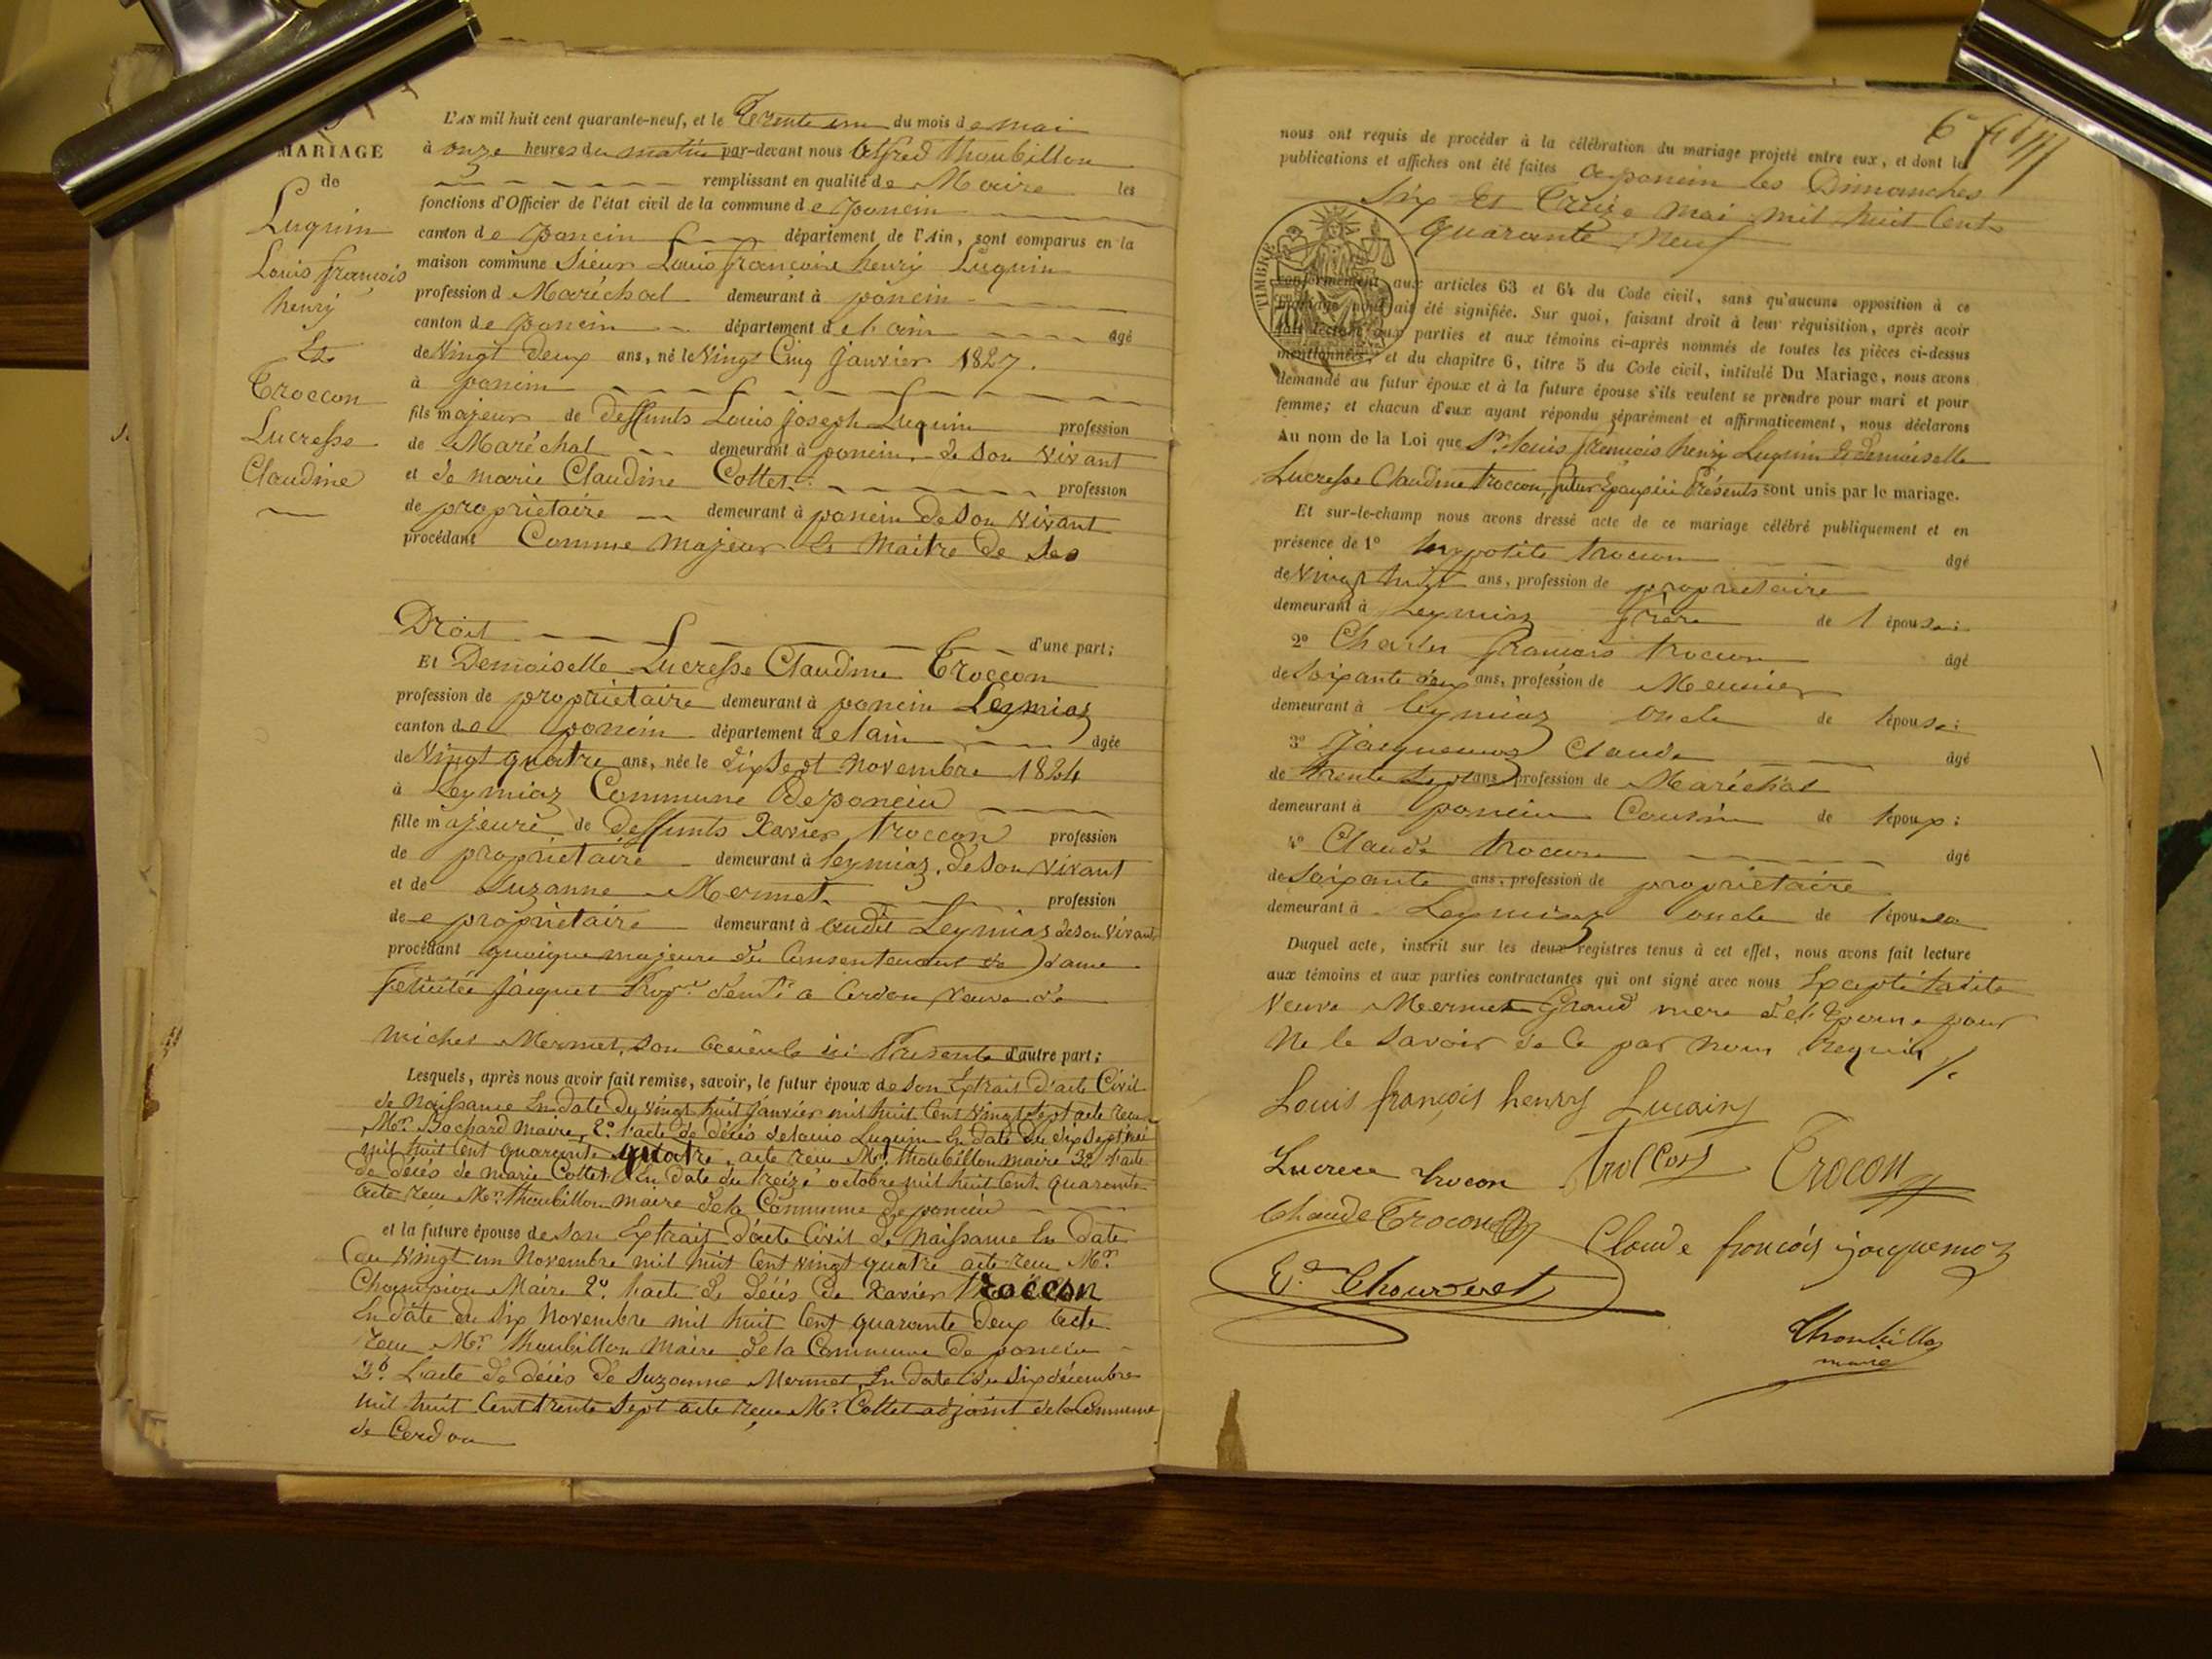 MARIAGE
de
Luquin
Louis françois
henry
Et
Troccon
Lucresse
Claudine
L'AN mil huit cent quarante-neuf, et le Trente un du mois de mai
à onze heures du matin par-devant nous Alfred thoubillon
remplissant en qualité de Maire les
fonctions d'Officier de l'état civil de la commune de poncin
canton de Poncin département de l'Ain, sont comparus en la
maison commune Sieur Louis françois henry Luquin
profession d Maréchal demeurant à poncin
canton de poncin département de l'ain âgé
de Vingt deux ans, né le Vingt Cinq Janvier 1827.
à poncin
fils majeur de deffunts Louis Joseph Luquin profession
de Maréchal demeurant à poncin de son vivant
et de marie Claudine Cottet profession
de propriétaire demeurant à poncin de son vivant
procédant Comme majeur et maitre de ses
Droit d'une part;
Et Demoiselle Lucresse Claudine Troccon
profession de propriétaire demeurant à poncin Leymiaz
canton de poncin département de l'ain âgée
de Vingt quatre ans, née le dix Sept Novembre 1824
à Leymiaz Commune de poncin
fille majeure de deffunts Xavier troccon profession
de propriétaire demeurant à leymiaz, de son vivant
et de Suzanne Mermet profession
de propriétaire demeurant à audit Leymiaz de son vivant
procédant quoique majeure du Consentement de dame
felicitée Jacquet Propre demte a Cerdon veuve de
michel Mermet, son ici Présente d'autre part;
Lesquels, après nous avoir fait remise, savoir, le futur époux de son Extrait d'acte Civil
de Naissance En date du vingt huit Janvier mil huit Cent vingt Sept acte reçu
Mr. Bochard maire, 2º l'acte de décés de louis Luquin En date du dix Sept mai
mil huit Cent quarante quatre, acte reçu Mr. thoubillon maire 3º l'acte
de décés de marie Cottet En date du treize octobre mil huit Cent quarante
acte reçu Mr. thoubillon maire de la Commune de poncin
et la future épouse de son Extrait d'acte Civil de Naissance En date
du vingt un Novembre mil huit Cent vingt quatre acte reçu Mr.
Champion Maire 2º l'acte de décés de Xavier troccon
En date du Six Novembre mil huit Cent quarante deux acte
reçu Mr thoubillon maire de la Commune de poncin
3º L'acte de décés de Suzanne Mermet En date du Six décembre
mil huit Cent trente Sept acte reçu Mr. Cottet adjoint de la Commune
de Cerdon
nous ont requis de procéder à la célébration du mariage projeté entre eux, et dont les
publications et affiches ont été faites a poncin les Dimanches
Six Et Treize mai mil huit Cent
quarante Neuf
TIMBRE
conformément aux articles 63 et 64 du Code civil, sans qu'aucune opposition à ce
mariage nous ait été signifiée. Sur quoi, faisant droit à leur réquisition, après avoir
fait lecture aux parties et aux témoins ci-après nommés de toutes les pièces ci-dessus
mentionnées, et du chapitre 6, titre 5 du Code civil, intitulé Du Mariage, nous avons
demandé au futur époux et à la future épouse s'ils veulent se prendre pour mari et pour
femme; et chacun d'eux ayant répondu séparément et affirmativement, nous déclarons
Au nom de la Loi que Sr. louis françois henry Luquin Et demoiselle
Lucresse Claudine troccon, futur Epoux ici Présents sont unis par le mariage.
Et sur-le-champ nous avons dressé acte de ce mariage célébré publiquement et en
présence de 1º hyppolite troccon âgé
de Vingt huit ans, profession de propriétaire
demeurant à Leymiaz frère de l épouse;
2º Charles françois troccon âgé
de Soixante deux ans, profession de Meunier
demeurant à leymiaz oncle de l'épouse;
3º Jacquemoz Claude âgé
de trente Sept ans, profession de Maréchal
demeurant à poncin Cousin de l'époux;
4º Claude troccon âgé
de Soixante ans, profession de propriétaire
demeurant à Leymiaz oncle de l'épouse
Duquel acte, inscrit sur les deux registres tenus à cet effet, nous avons fait lecture
aux témoins et aux parties contractantes qui ont signé avec nous Excepté ladite
Veuve Mermet Grand mere de l'Epouse pour
Ne le savoir de ce par nous requis
Louis françois henry Lucain
Lucrece trocon troccon Trocon
Claude Trocon Claude françois jacquemoz
Thoubillon
maire